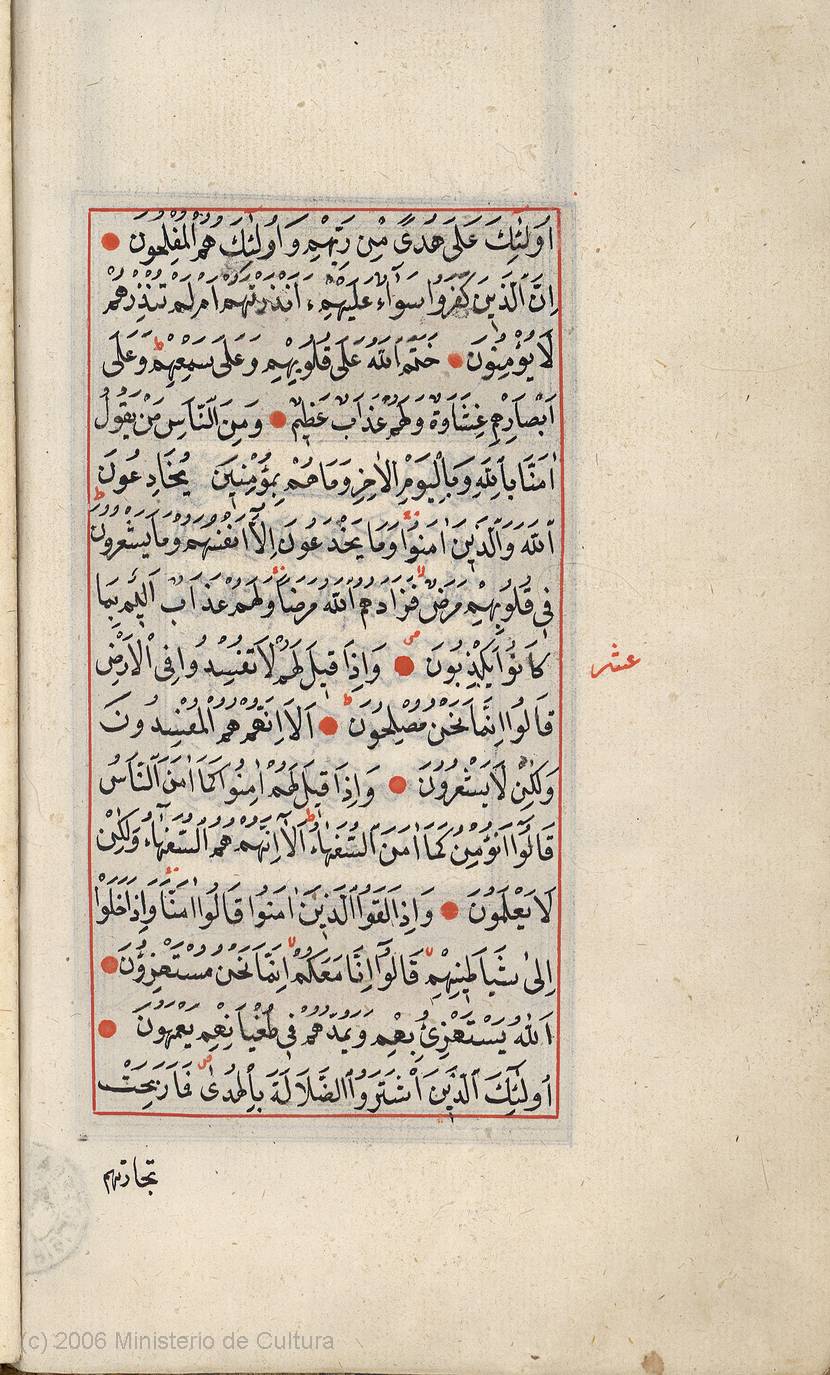 اُولٰئِكَ عَلٰى هُدًى مِنْ رَبِّهِمْ وَاُولٰئِكَ هُمُ الْمُفْلِحُونَ
اِنَّ الَّذِينَ كَفَرُوا سَوَاءٌ عَلَيْهِمْ ءَاَنْذَرْتَهُمْ اَمْ لَمْ تُنْذِرْهُمْ
لَا يُؤْمِنُونَ خَتَمَ اللّٰهُ عَلٰى قُلُوبِهِمْ وَعَلٰى سَمْعِهِمْ ط وَعَلٰى
اَبْصَارِهِمْ غِشَاوَةٌ وَلَهُمْ عَذَابٌ عَظِيمٌ وَمِنَ النَّاسِ مَنْ يَقُولُ
اٰمَنَّا بِاللّٰهِ وَبِالْيَوْمِ الْاٰخِرِ وَمَا هُمْ بِمُؤْمِنِينَ يُخَادِعُونَ
اللّٰهَ وَالَّذِينَ اٰمَنُوا وَمَا يَخْدَعُونَ اِلَّا اَنْفُسَهُمْ وَمَا يَشْعُرُونَ ط
فِي قُلُوبِهِمْ مَرَضٌ لا فَزَادَهُمُ اللّٰهُ مَرَضًا وَلَهُمْ عَذَابٌ اَلِيمٌ بِمَا
كَانُوا يَكْذِبُونَ وَاِذَا قِيلَ لَهُمْ لَا تُفْسِدُوا فِي الْاَرْضِ
عشر
قَالُوا اِنَّمَا نَحْنُ مُصْلِحُونَ ط اَلَا اِنَّهُمْ هُمُ الْمُفْسِدُونَ
وَلٰكِنْ لَا يَشْعُرُونَ وَاِذَا قِيلَ لَهُمْ اٰمِنُوا كَمَا اٰمَنَ النَّاسُ
قَالُوا اَنُؤْمِنُ كَمَا اٰمَنَ السُّفَهَاءُ ط اَلَا اِنَّهُمْ هُمُ السُّفَهَاءُ وَلٰكِنْ
لَا يَعْلَمُونَ وَاِذَا لَقُوا الَّذِينَ اٰمَنُوا قَالُوا اٰمَنَّا وَاِذَا خَلَوْا
اِلٰى شَيَاطِينِهِمْ لا قَالُوا اِنَّا مَعَكُمْ لا اِنَّمَا نَحْنُ مُسْتَهْزِؤُنَ
اَللّٰهُ يَسْتَهْزِئُ بِهِمْ وَيَمُدُّهُمْ فِي طُغْيَانِهِمْ يَعْمَهُونَ
اُولٰئِكَ الَّذِينَ اشْتَرَوُا الضَّلَالَةَ بِالْهُدٰى ص فَمَا رَبِحَتْ
تجارتهم
(c) 2006 Ministerio de Cultura